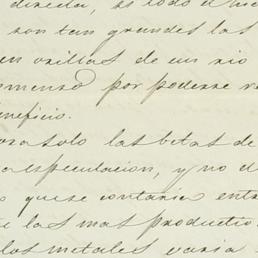 directa, es todo el
son tan grandes las
en orillas de un rio
inmenso por poderse
beneficio.
solo las betas de
especulacion, y no d
quese contaria entr
las mas productio
los metales varia